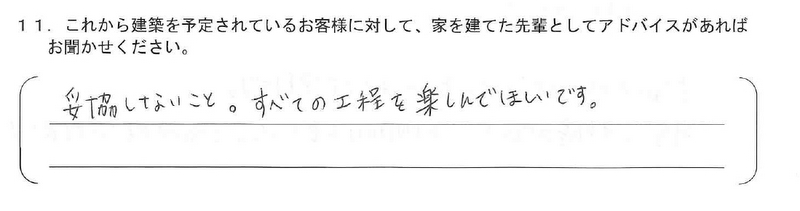 １１．これから建築を予定されているお客様に対して、家を建てた先輩としてアドバイスがあれば
お聞かせください。
妥協しないこと。すべての工程を楽しんでほしいです。